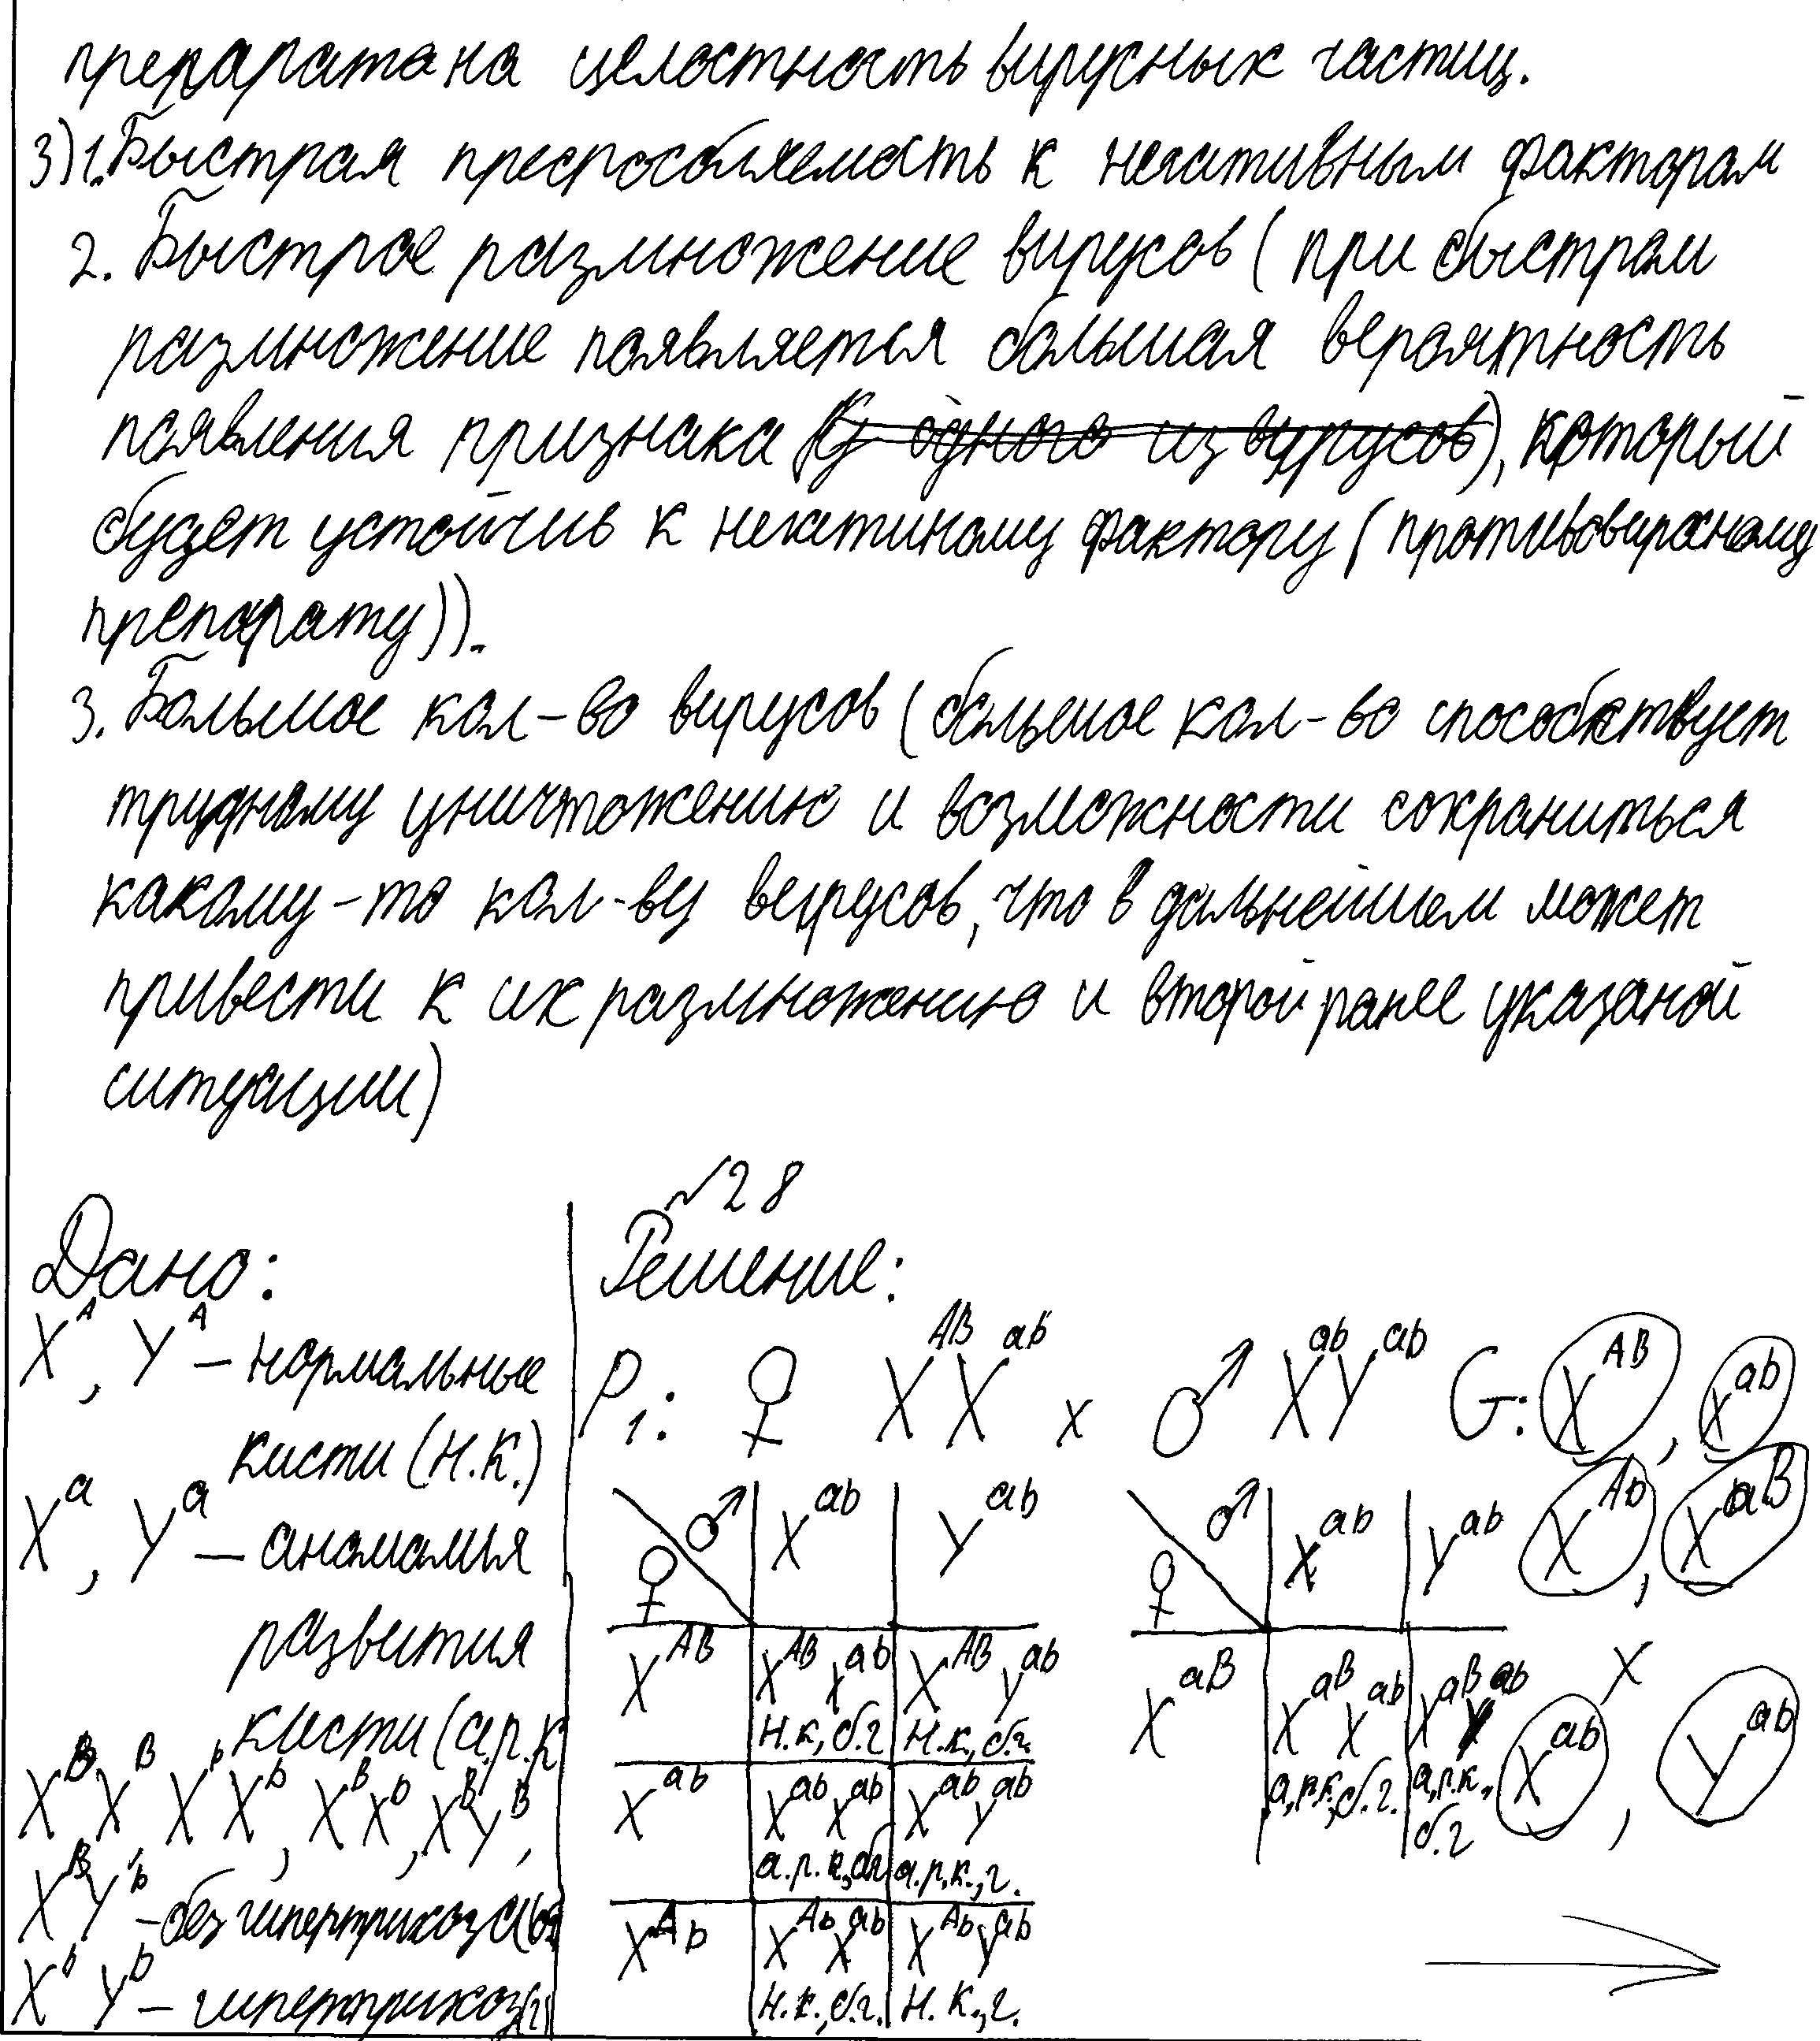 препарата на целостность вирусных частиц.
3) 1. Быстрая преспособляемость к негативным факторам
2. Быстрое размножение вирусов (при быстром
размножение появляется большая вероятность
появления признака (у одного из вирусов), который
будет устойчив к негатиному фактору (противовирусному
препарату)).
3. Большое кол-во вирусов (большое кол-во способствует
трудному уничтожению и возможности сохраниться
какому-то кол-ву вирусов, что в дальнейшем может
привести к их размножению и второй ранее указаной
ситуации)
№28
Дано:
X^A, Y^A – нормальные
кисти (н.к.)
X^a, Y^a – аномалия
развития
кисти (а.р.к
X^B X^B, X^b X^b, X^B X^b, X^B Y^B,
X^B Y^b – без гипертрихоза (бг
X^b Y^b – гипертрихоз (г)
Решение:
P₁: ♀ X^AB X^ab x ♂ X^ab Y^ab G: X^AB, X^ab
X^Ab, X^aB
x
X^ab, Y^ab
♀ ♂ X^ab Y^ab
X^AB X^AB X^ab X^AB Y^ab
н.к, б.г. н.к., б.г.
X^ab X^ab X^ab X^ab Y^ab
а.р.к, бг а.р.к., г.
X^Ab X^Ab X^ab X^Ab Y^ab
н.к., б.г. н.к., г.
♀ ♂ X^ab Y^ab
X^aB X^aB X^ab X^aB Y^ab
а.р.к., б.г. а.р.к.,
б.г